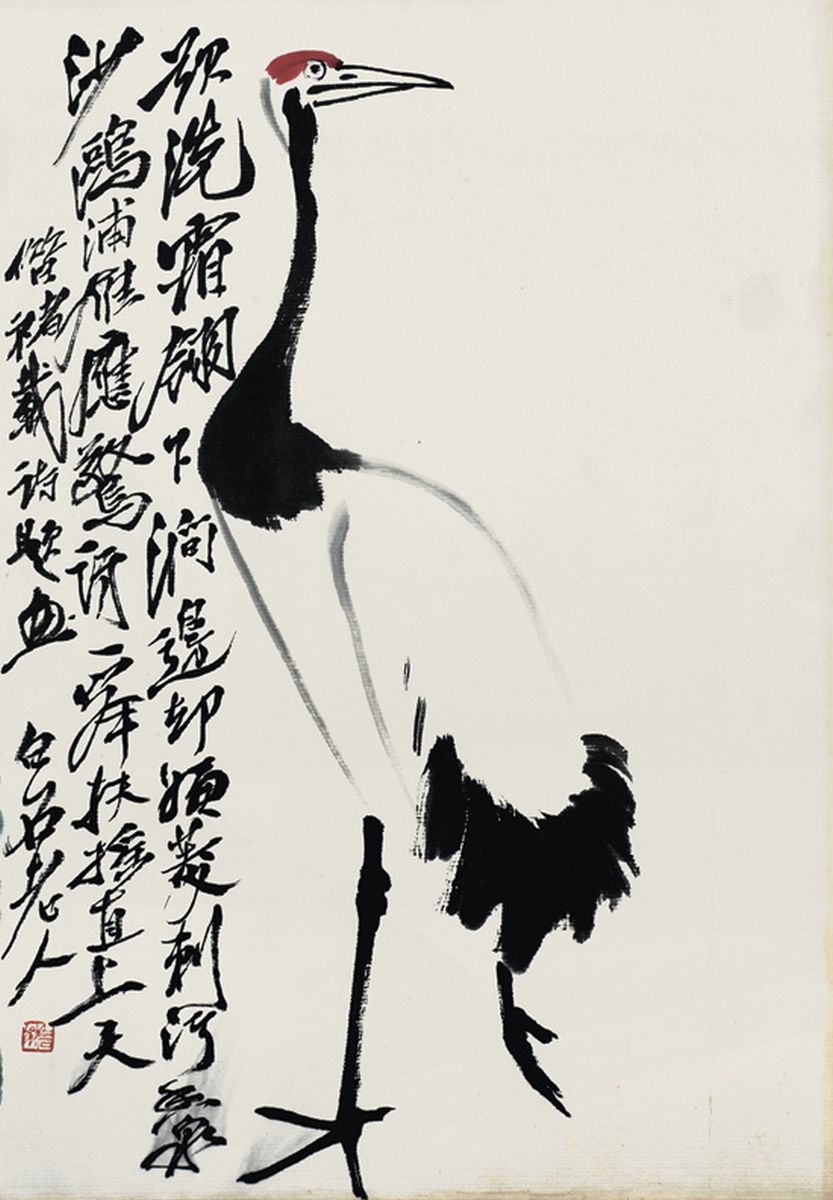 欲洗霜翎下澗邊却嫌菱刺污香泉
沙鷗浦雁應驚訝一舉扶搖直上天
借褚載詩題画
白石老人